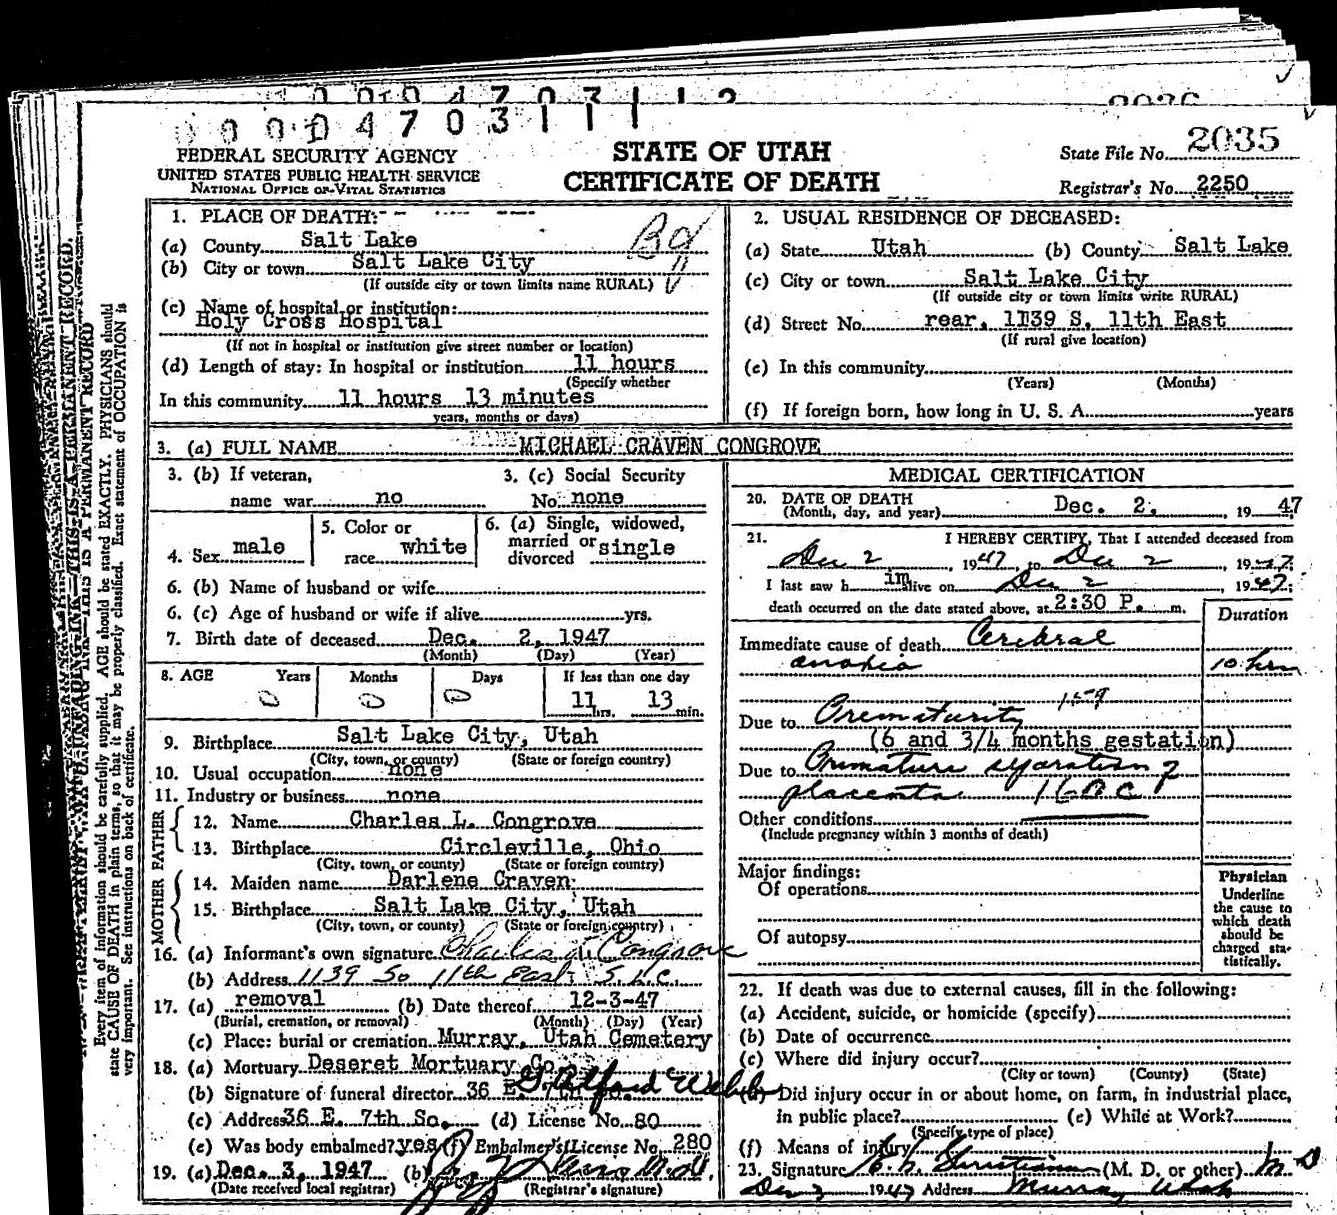 0 0 0 4 7 0 3 1 1 2
2036
0 0 0 0 4 7 0 3 1 1 1
FEDERAL SECURITY AGENCY
UNITED STATES PUBLIC HEALTH SERVICE
NATIONAL OFFICE OF VITAL STATISTICS
STATE OF UTAH
CERTIFICATE OF DEATH
State File No. 2035
Registrar's No. 2250
THIS IS A PERMANENT RECORD
Every item of information should be carefully supplied. AGE should be stated EXACTLY. PHYSICIANS should
state CAUSE OF DEATH in plain terms, so that it may be properly classified. Exact statement of OCCUPATION is
very important. See instructions on back of certificate.
1. PLACE OF DEATH:
(a) County Salt Lake
(b) City or town Salt Lake City
(If outside city or town limits name RURAL)
(c) Name of hospital or institution:
Holy Cross Hospital
(If not in hospital or institution give street number or location)
(d) Length of stay: In hospital or institution 11 hours
(Specify whether
In this community 11 hours 13 minutes
years, months or days)
2. USUAL RESIDENCE OF DECEASED:
(a) State Utah (b) County Salt Lake
(c) City or town Salt Lake City
(If outside city or town limits write RURAL)
(d) Street No. rear. 1139 S. 11th East
(If rural give location)
(e) In this community
(Years) (Months)
(f) If foreign born, how long in U. S. A. years
3. (a) FULL NAME MICHAEL CRAVEN CONGROVE
3. (b) If veteran, name war no
3. (c) Social Security No. none
4. Sex male
5. Color or race white
6. (a) Single, widowed, married or divorced single
6. (b) Name of husband or wife
6. (c) Age of husband or wife if alive yrs.
7. Birth date of deceased Dec. 2, 1947
(Month) (Day) (Year)
8. AGE Years Months Days If less than one day
0 0 0 11 hrs. 13 min.
9. Birthplace Salt Lake City, Utah
(City, town, or county) (State or foreign country)
10. Usual occupation none
11. Industry or business none
FATHER
12. Name Charles L. Congrove
13. Birthplace Circleville, Ohio
(City, town, or county) (State or foreign country)
MOTHER
14. Maiden name Darlene Craven
15. Birthplace Salt Lake City, Utah
(City, town, or county) (State or foreign country)
16. (a) Informant's own signature Charles L. Congrove
(b) Address 1139 So 11th East S.L.C.
17. (a) removal (b) Date thereof 12-3-47
(Burial, cremation, or removal) (Month) (Day) (Year)
(c) Place: burial or cremation Murray, Utah Cemetery
18. (a) Mortuary Deseret Mortuary Co
(b) Signature of funeral director 36 E. 7th
(c) Address 36 E. 7th So. (d) License No. 80
(e) Was body embalmed? yes (f) Embalmer's License No. 280
19. (a) Dec. 3, 1947 (b) M.D.
(Date received local registrar) (Registrar's signature)
MEDICAL CERTIFICATION
20. DATE OF DEATH
(Month, day, and year) Dec. 2. , 19 47
21. I HEREBY CERTIFY, That I attended deceased from
Dec 2 , 1947, to Dec 2 , 1947;
I last saw h im alive on Dec 2 , 1947;
death occurred on the date stated above, at 2:30 P. m.
Duration
Immediate cause of death Cerebral
anoxia 10 hrs
159
Due to Prematurity
(6 and 3/4 months gestation)
Due to Premature separation of
placenta 160c
Other conditions
(Include pregnancy within 3 months of death)
Major findings:
Of operations
Of autopsy
Physician
Underline
the cause to
which death
should be
charged sta-
tistically.
22. If death was due to external causes, fill in the following:
(a) Accident, suicide, or homicide (specify)
(b) Date of occurrence
(c) Where did injury occur?
(City or town) (County) (State)
(d) Did injury occur in or about home, on farm, in industrial place,
in public place? (e) While at Work?
(Specify type of place)
(f) Means of injury
23. Signature Christianson (M. D. or other) M D
Dec 2 1947 Address Murray Utah